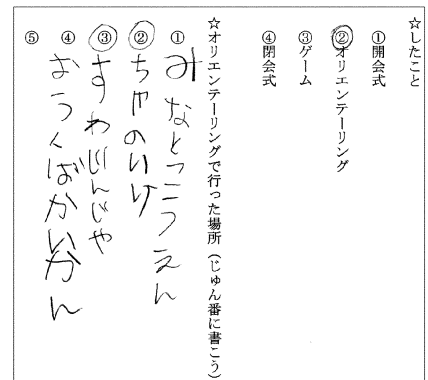 ☆したこと
①開会式
②オリエンテーリング
③ゲーム
④閉会式
☆オリエンテーリングで行った場所(じゅん番に書こう)
①みなとこうえん
②ちゃのいけ
③すわじんじゃ
④おうくばかいかん
⑤